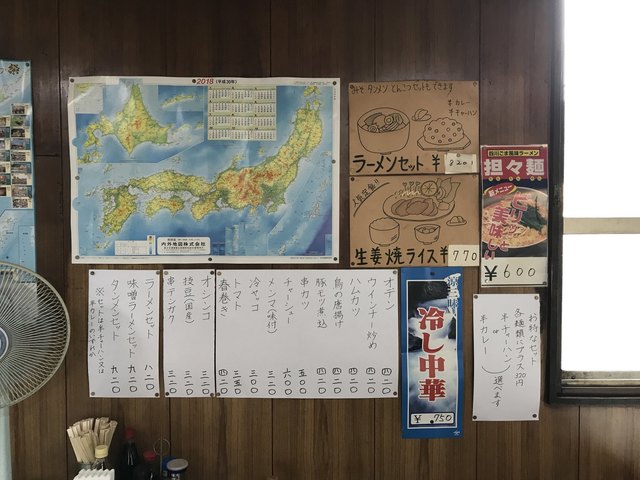 2018(平成30年)
内外地図株式会社
みそ タンメン とんこつセットもできます
半カレー
半チャーハン
ラーメンセット ¥820
生姜焼ライス ¥770
四川ごま風味ラーメン
担々麺
新メニュー
ピリッと美味しい
¥600
オデン 四二〇
ウインナー炒め 四二〇
ハムカツ 四二〇
鳥の唐揚げ 四二〇
豚モツ煮込 四二〇
串カツ 五〇〇
チャーシュー 六〇〇
メンマ(味付) 三〇〇
冷ヤッコ 三〇〇
トマト 三五〇
春巻き 四二〇
オシンコ 三二〇
枝豆(国産) 三二〇
串テンガク 三二〇
ラーメンセット 八二〇
味噌ラーメンセット 九二〇
タンメンセット 九二〇
※セットは半チャーハン又は
半カレーのどれか
冷し中華
¥750
お得なセット
各麺類にプラス320円
半チャーハン
or
半カレー
選べます